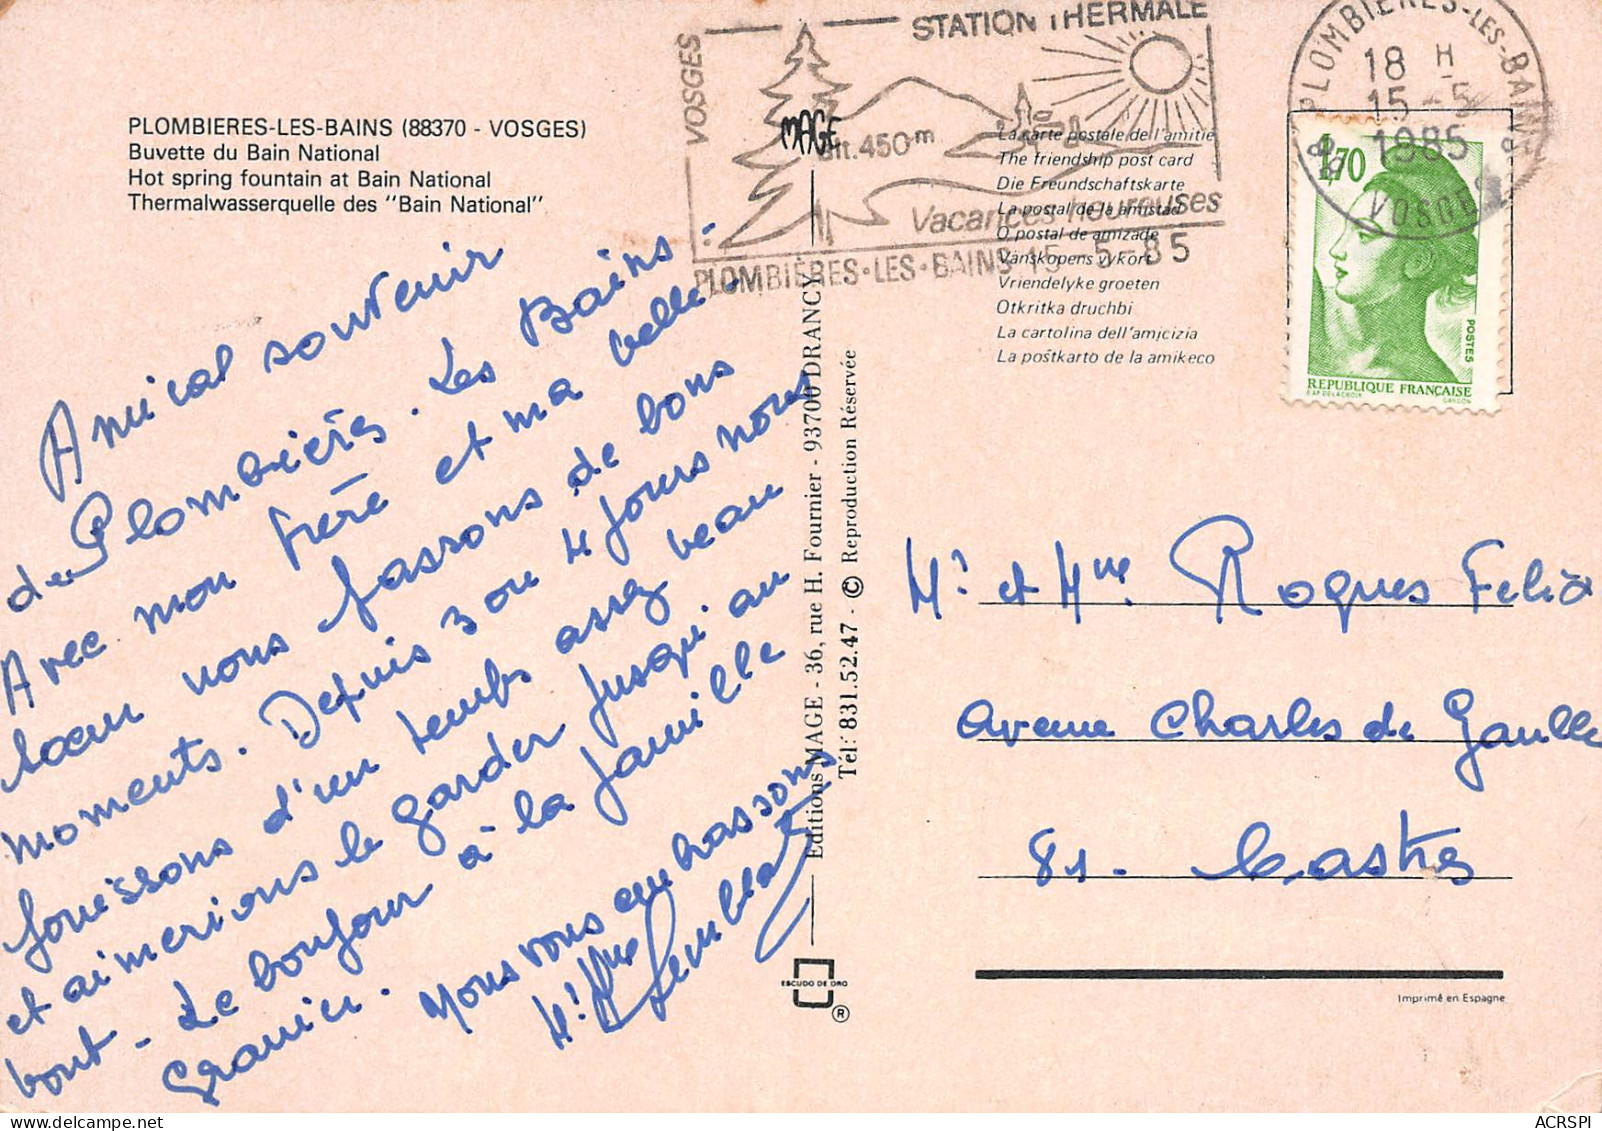 PLOMBIERES-LES-BAINS (88370 - VOSGES)
Buvette du Bain National
Hot spring fountain at Bain National
Thermalwasserquelle des "Bain National"
VOSGES
STATION THERMALE
alt. 450 m
Vacances heureuses
PLOMBIÈRES·LES·BAINS 15-5-85
PLOMBIÈRES-LES-BAINS
18 H
15-5
1985
88
VOSGES
1,70
POSTES
REPUBLIQUE FRANÇAISE
EAP DELACROIX
GANDON
MAGE
La carte postale de l'amitie
The friendship post card
Die Freundschaftskarte
La postal de la amistad
O postal de amizade
Vänskapens vykort
Vriendelyke groeten
Otkritka druchbi
La cartolina dell'amicizia
La poŝtkarto de la amikeco
Amical souvenir
de Plombières. Les Bains.
Avec mon frère et ma belle-
sœur nous passons de bons
moments. Depuis 3 ou 4 jours nous
jouissons d'un temps assez beau
et aimerions le garder jusqu'au
bout - Le bonjour à la famille
Granier. Nous vous embrassons
Mr Mme
Editions MAGE - 36, rue H. Fournier - 93700 DRANCY
Tél: 831.52.47 - © Reproduction Réservée
ESCUDO DE ORO
®
Mr et Mme Roques Felix
avenue Charles de Gaulle
81 - Castres
Imprimé en Espagne
ACRSPI